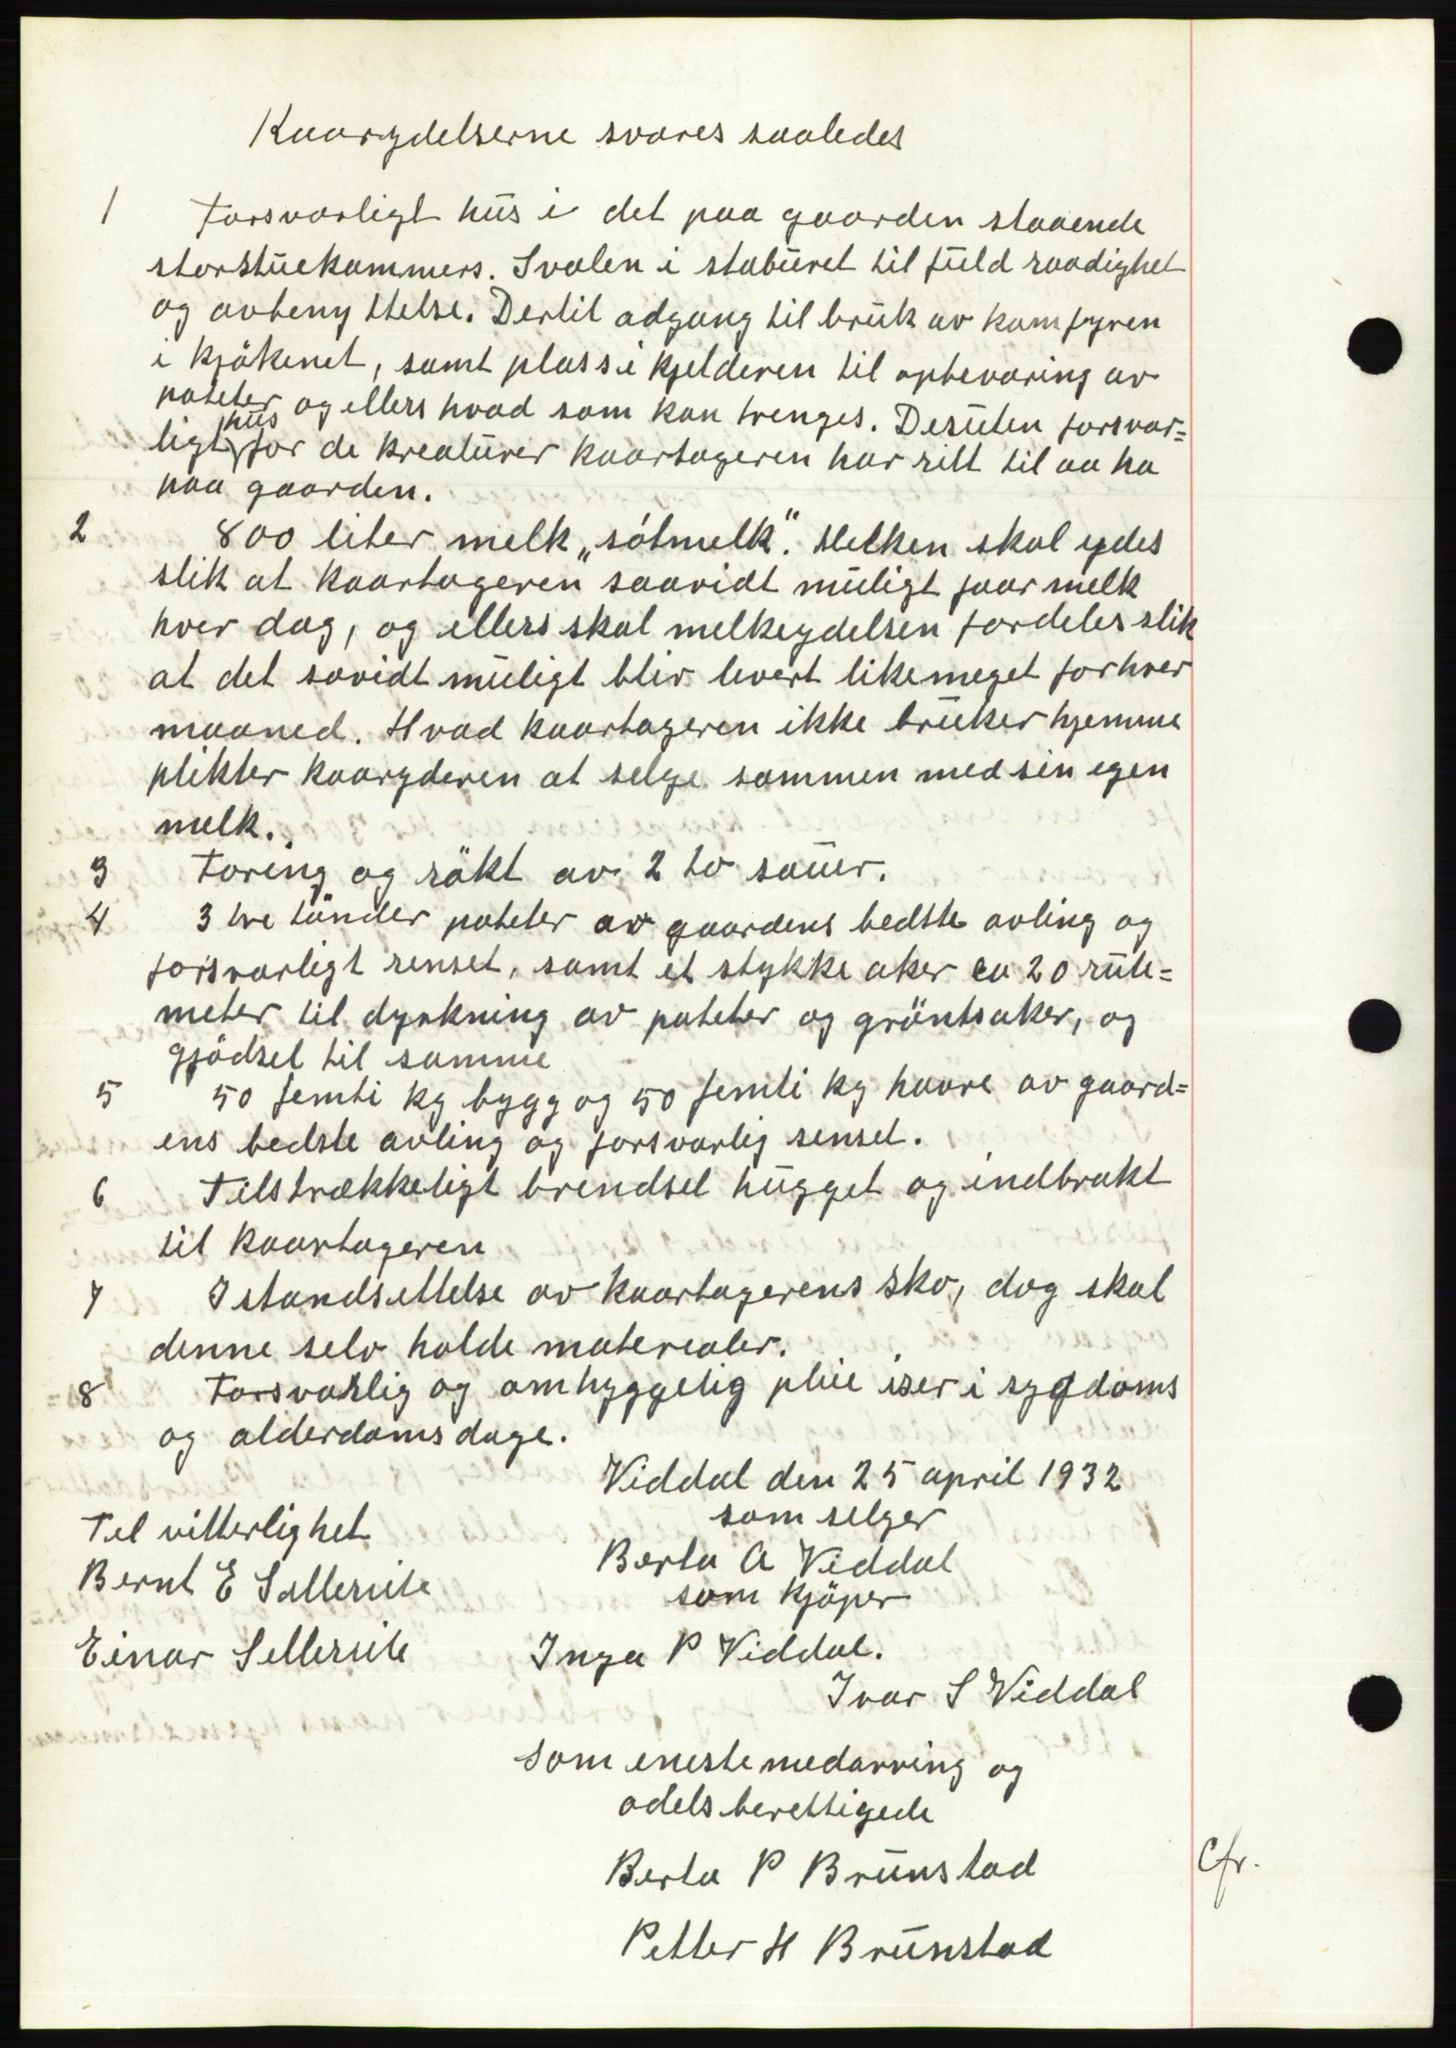 Kaarydelserne svares saaledes
1 Forsvarligt hus i det paa gaarden staaende
storstuekammers. Svalen i staburet til fuld raadighet
og avbenyttelse. Dertil adgang til bruk av komfyren
i kjökenet, samt plass i kjelderen til opbevaring av
poteter og ellers hvad som kan trenges. Desuten forsvar=
ligt hus for de kreaturer kaartageren har rett til aa ha
paa gaarden.
2 800 liter melk „sötmelk". Melken skal ydes
slik at kaartageren saavidt muligt faar melk
hver dag, og ellers skal melkeydelsen fordeles slik
at det savidt muligt blir levert likemeget for hver
maaned. Hvad kaartageren ikke bruker hjemme
plikter kaaryderen at selge sammen med sin egen
melk.
3 Foring og rökt av 2 to sauer.
4 3 tre tönder poteter av gaardens bedste avling og
forsvarligt renset, samt et stykke aker ca 20 rute=
meter til dyrkning av poteter og gröntsaker, og
gjödsel til samme
5 50 femti kg bygg og 50 femti kg havre av gaard=
ens bedste avling og forsvarlig renset.
6 Tilstrækkeligt brendsel hugget og indbrakt
til kaartageren
7 Istandsettelse av kaartagerens sko, dog skal
denne selv holde materealer.
8 Forsvarlig og omhyggelig pleie iser i sygdoms
og alderdomsdage.
Viddal den 25 april 1932
som selger
Til vitterlighet
Berta A Viddal
Bernt E Sætterlie
som kjöper
Einar Sellerite
Inga P Viddal.
Ivar S Viddal
som eneste medarving og
odelsberettigede
Berta P Brunstad
Cfr.
Petter H Brunstad